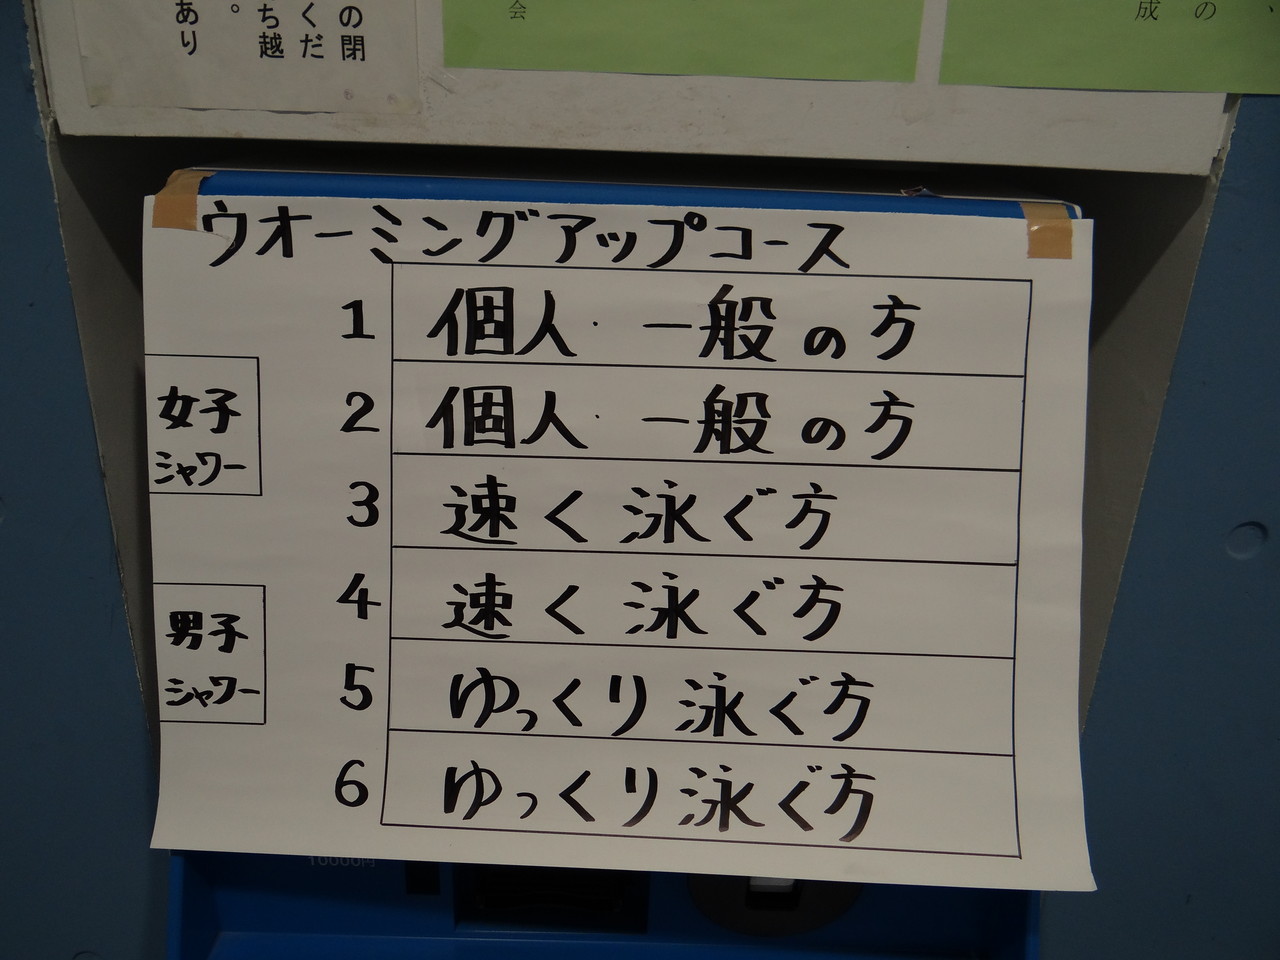 の閉
くだ
ち越
。
あり
会
成の、
ウオーミングアップコース
1 個人・一般の方
2 個人・一般の方
3 速く泳ぐ方
4 速く泳ぐ方
5 ゆっくり泳ぐ方
6 ゆっくり泳ぐ方
女子
シャワー
男子
シャワー
10000円